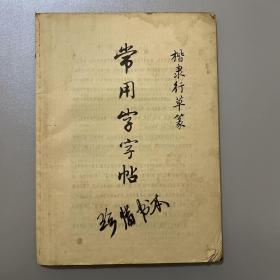 楷隶行草篆
常用字字帖